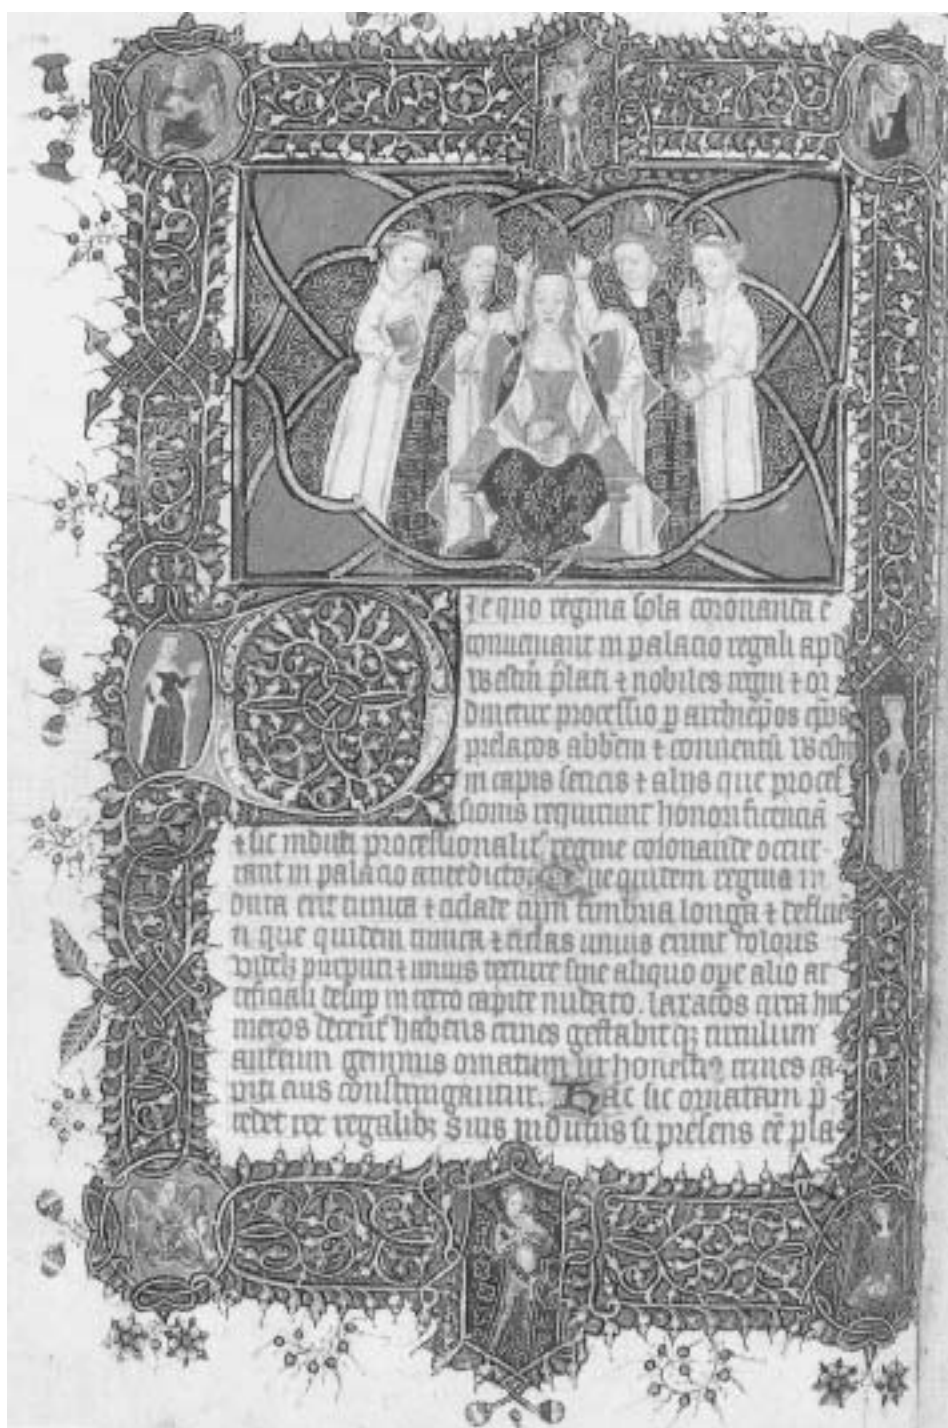 Die quo regina sola coronanda ē
conveniant in palacio regali apd
Westm p̄lati ⁊ nobiles regni ⁊ or
dinetur processio p archiep̄os ep̄os
prelatos abbēm ⁊ conventū Westm
in capis sericis ⁊ aliis que proces
sionis requirunt honorificenciā
⁊ sic induti processionalit̄ regine coronande occur
rant in palacio antedicto. Que quidem regina in
duta erit tunica ⁊ ciclade cum fimbria longa ⁊ deflue
ti que quidem tunica ⁊ ciclas unius erunt coloris
videlꝫ purpurei ⁊ unius texture sine aliquo ope alio ar
tificiali desup intexto capite nudato. laxatos circa hu
meros decent̄ habens crines gestabitqꝫ circulum
aureum gemmis ornatum ut honesti⁹ crines ca
piti eius constringantur. Hāc sic ornatam p̄
cedet rex regalibꝫ suis indutus si presens eē pla